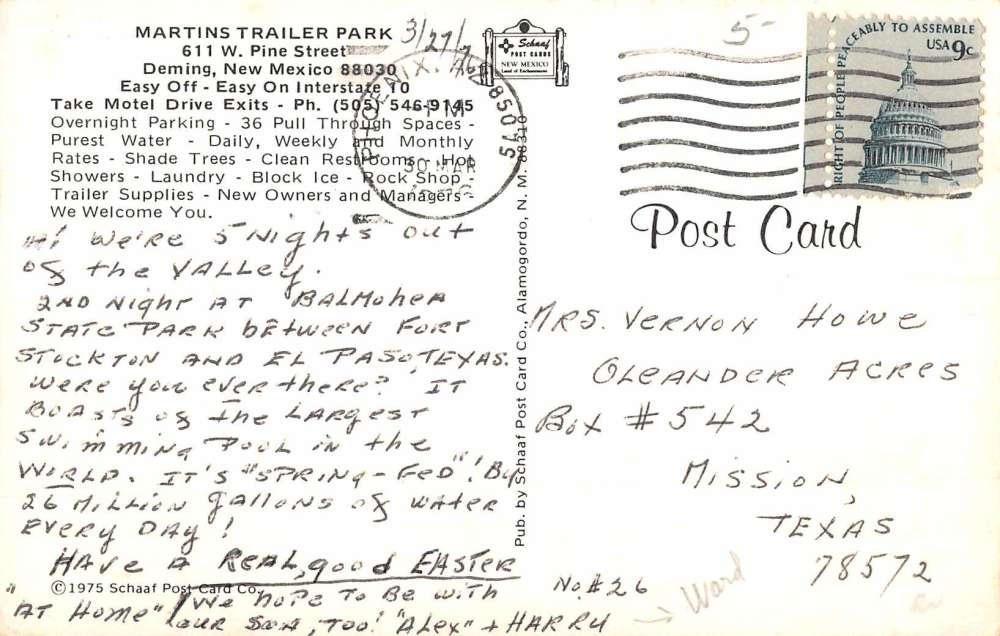 MARTINS TRAILER PARK
611 W. Pine Street
Deming, New Mexico 88030
Easy Off - Easy On Interstate 10
Take Motel Drive Exits - Ph. (505) 546-9145
Overnight Parking - 36 Pull Through Spaces -
Purest Water - Daily, Weekly and Monthly
Rates - Shade Trees - Clean Restrooms - Hot
Showers - Laundry - Block Ice - Rock Shop -
Trailer Supplies - New Owners and Managers -
We Welcome You.
3/27/76
Schaaf
POST CARDS
NEW MEXICO
Land of Enchantment
PHOENIX, AZ 85075
PM
30 MAR
5-
RIGHT OF PEOPLE PEACEABLY TO ASSEMBLE
USA 9c
Post Card
Hi We're 5 Nights out
of the VALLEY.
2ND Night AT BALMOHEA
STATE PARK bETWEEN FORT
STOCKTON AND EL PASO, TEXAS.
Were you ever there? IT
BOASTS of the LARGEST
SWIMMING POOL IN the
WORLD. IT'S "SPRING-FED"! By
26 MILLION gallons of WATER
EVERY DAY!
HAVE A REAL, good EASTER
"AT HOME"! We hope To Be with
our Son, Too! "Alex" + HARRY
©1975 Schaaf Post Card Co.
Pub. by Schaaf Post Card Co., Alamogordo, N. M. 88310
MRS. VERNON HOWE
OLEANDER ACRES
Box #542
MISSION,
TEXAS
78572
No. #26
Ward